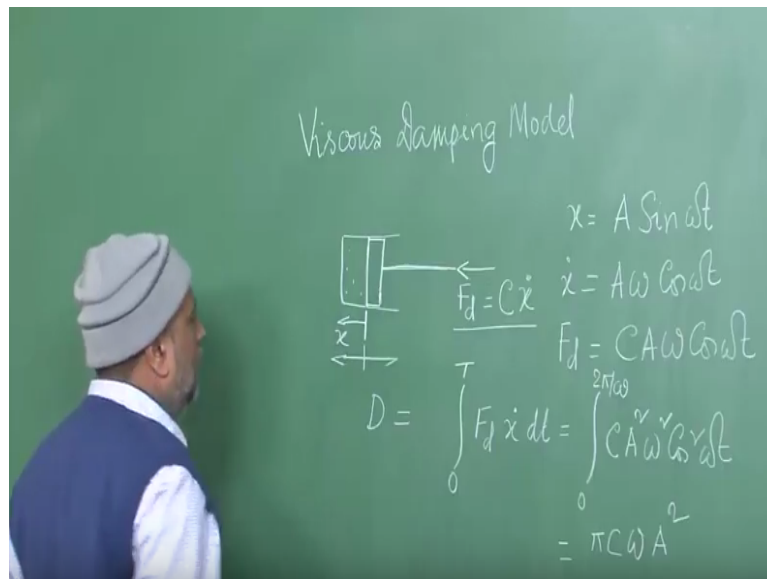 Viscous Damping Model
x = A Sin ωt
F_d = Cẋ
ẋ = Aω Cos ωt
x
F_d = CAω Cos ωt
D = ∫₀ᵀ F_d ẋ dt = ∫₀^{2π/ω} CA²ω² Cos² ωt
= πCωA²